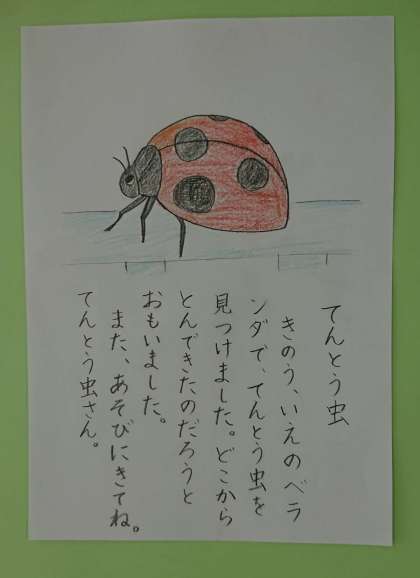 てんとう虫
きのう、いえのベラ
ンダで、てんとう虫を
見つけました。どこから
とんできたのだろうと
おもいました。
また、あそびにきてね。
てんとう虫さん。